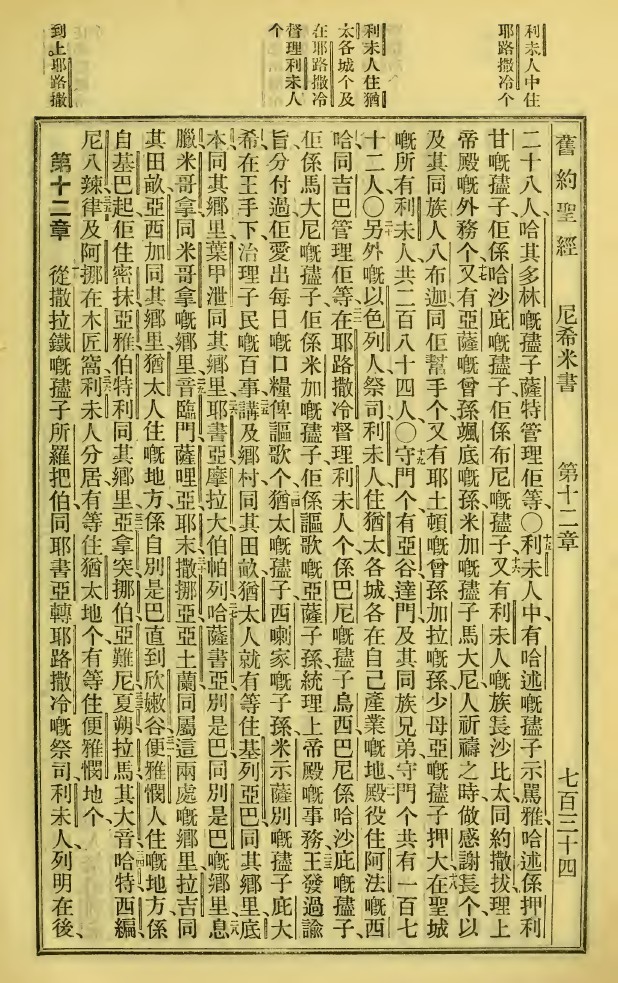 利未人中住
耶路撒冷个
利未人住猶
太各城个及
在耶路撒冷
督理利未人
个
到上耶路撒
舊約聖經 尼希米書 第十二章 七百三十四
二十八人、哈其多林嘅𧝞子薩特管理佢等、〇利未人中有哈述嘅子示罵雅哈述係押利
甘嘅子佢係哈沙庇嘅子佢係布尼嘅子又有利未人嘅族長沙比太同約撒拔理上
帝殿嘅外務个、又有亞薩嘅曾孫颯底嘅孫米加嘅子馬大尼人祈禱之時做感謝長个以
及其同族人八布迦同佢幫手个又有耶土頓嘅曾孫加拉嘅孫少母亞嘅子押大在聖城
嘅所有利未人共二百八十四人、〇守門个有亞谷達門及其同族兄弟守門个共有一百七
十二人、〇另外嘅以色列人祭司利未人住猶太各城各在自己產業嘅地殿役住阿法嘅西
哈同吉巴管理佢等、在耶路撒冷督理利未人个係巴尼嘅子烏西巴尼係哈沙庇嘅子、
佢係馬大尼嘅子佢係米加嘅子、佢係謳歌嘅亞薩子孫統理上帝殿嘅事務、王發過諭
旨分付過佢愛出每日嘅口糧俾謳歌个、猶太嘅子西喇家嘅子孫米示薩別嘅子庇大
希在王手下治理子民嘅百事、講及鄉村同其田畝猶太人就有等住基列亞巴同其鄉里底
本同其鄉里葉甲泄同其鄉里耶書亞摩拉大伯帕列哈薩書亞別是巴同別是巴嘅鄉里息
臘米哥拿同米哥拿嘅鄉里音臨門薩哩亞耶末撒挪亞亞土蘭同屬這兩處嘅鄉里拉吉同
其田畝亞西加同其鄉里猶太人住嘅地方係自別是巴直到欣嫩谷、便雅憫人住嘅地方係
自基巴起佢住密抹亞雅伯特利同其鄉里亞拿突挪伯亞難尼夏朔拉馬其大音哈特西編
尼八辣律及阿挪在木匠窩利未人分居有等住猶太地个有等住便雅憫地个、
第十二章 從撒拉鐵嘅子所羅把伯同耶書亞轉耶路撒冷嘅祭司利未人、列明在後、